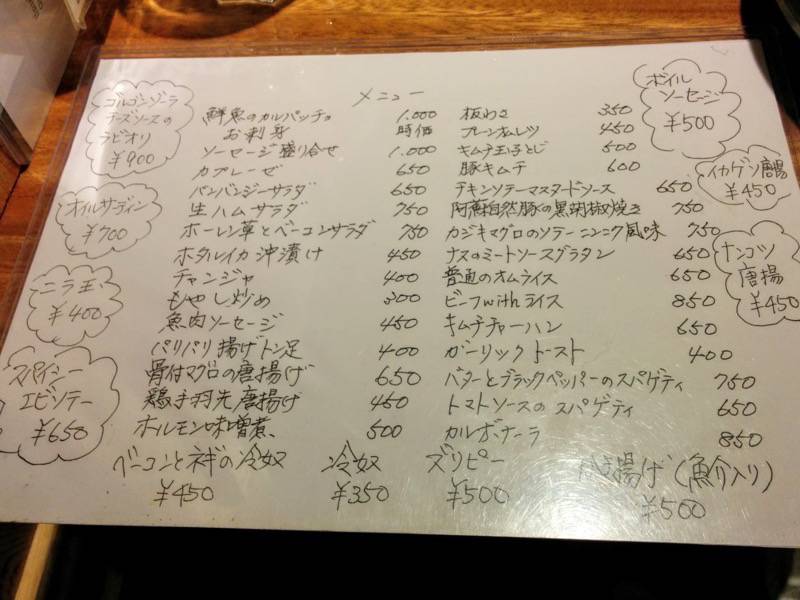 メニュー
ゴルゴンゾーラ
チーズソースの
ラビオリ
¥900
オイルサーディン
¥700
ニラ玉
¥400
スパイシー
エビソテー
¥650
鮮魚のカルパッチョ 1.000
お刺身 時価
ソーセージ盛り合せ 1.000
カプレーゼ 650
バンバンジーサラダ 650
生ハムサラダ 750
ホーレン草とベーコンサラダ 750
ホタルイカ沖漬け 450
チャンジャ 400
もやし炒め 300
魚肉ソーセージ 450
パリパリ揚げトン足 400
骨付マグロの唐揚げ 650
鶏手羽先唐揚げ 450
ホルモン味噌煮 500
板わさ 350
プレーンオムレツ 450
キムチ玉子とじ 500
豚キムチ 600
チキンソテーマスタードソース 650
阿蘇自然豚の黒胡椒焼き 750
カジキマグロのソテーニンニク風味 750
ナスのミートソースグラタン 650
普通のオムライス 650
ビーフwithライス 850
キムチチャーハン 650
ガーリックトースト 400
バターとブラックペッパーのスパゲティ 750
トマトソースのスパゲティ 650
カルボナーラ 850
ボイル
ソーセージ
¥500
イカゲソ唐揚
¥450
ナンコツ
唐揚
¥450
ベーコンとネギの冷奴 冷奴 ズリピー かき揚げ(魚介入り)
¥450 ¥350 ¥500 ¥500